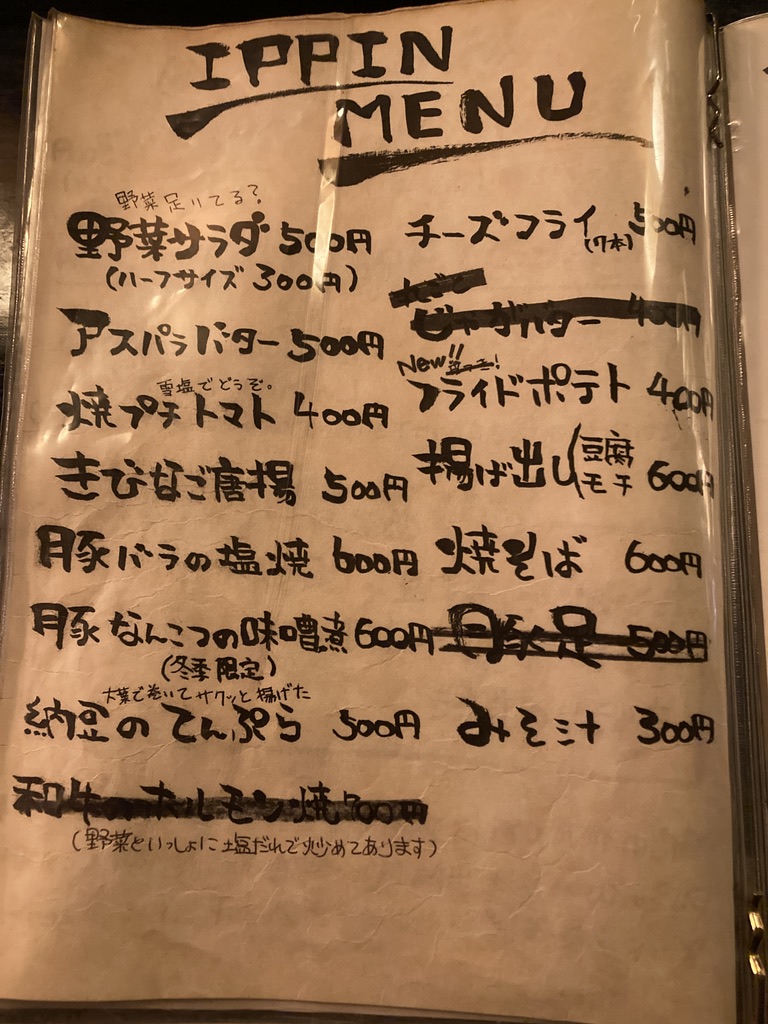 IPPIN
MENU
野菜足りてる?
野菜サラダ 500円
(ハーフサイズ 300円)
アスパラバター 500円
雪塩でどうぞ。
焼プチトマト 400円
きびなご唐揚 500円
豚バラの塩焼 600円
豚なんこつの味噌煮 600円
(冬季限定)
大葉で巻いてサクッと揚げた
納豆のてんぷら 500円
和牛のホルモン焼 700円
(野菜といっしょに塩だれで炒めてあります)
チーズフライ(7本) 500円
じゃがバター 400円
New!!
フライドポテト 400円
揚げ出し(豆腐 モチ 600円
焼そば 600円
豚足 500円
みそ汁 300円